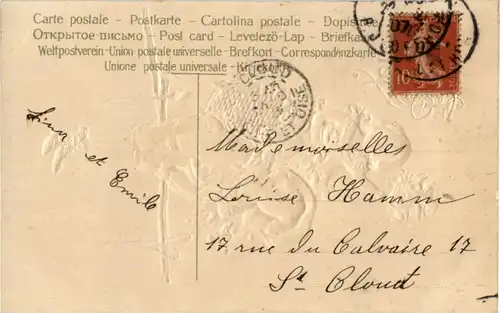 Carte postale - Postkarte - Cartolina postale - Dopis
Открытое письмо - Post card - Levelezö-Lap - Briefka
Weltpostverein-Union postale universelle-Brefkort-Correspondenzkarte
Unione postale universale -
Lina et Emile
Mademoiselles
Louise Hamm
17 rue du Calvaire 17
St Cloud
10